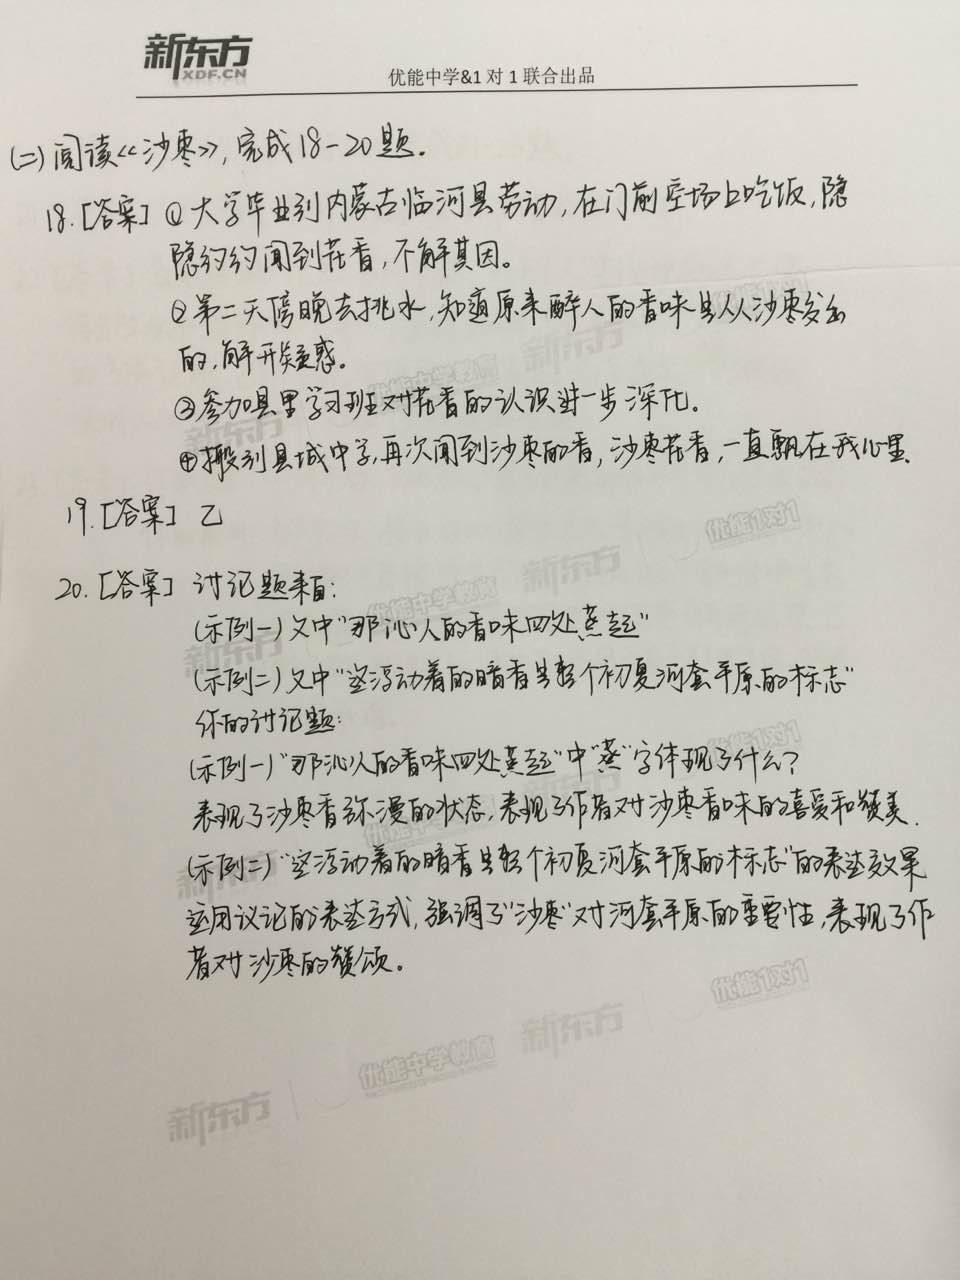 新东方
XDF.CN
优能中学&1对1联合出品
(二)阅读《沙枣》,完成18-20题.
18.[答案] ①大学毕业到内蒙古临河县劳动,在门前空场上吃饭,隐
隐约约闻到花香,不解其因。
②第二天傍晚去挑水,知道原来醉人的香味是从沙枣发出
的,解开疑惑。
③参加县里学习班对花香的认识进一步深化。
④搬到县城中学,再次闻到沙枣的香,沙枣花香,一直飘在我心里.
19.[答案] 乙
20.[答案] 讨论题来自:
(示例一)文中"那沁人的香味四处蒸起"
(示例二)文中"空浮动着的暗香是整个初夏河套平原的标志"
你的讨论题:
(示例一)"那沁人的香味四处蒸起"中"蒸"字体现了什么?
表现了沙枣香弥漫的状态,表现了作者对沙枣香味的喜爱和赞美.
(示例二)"空浮动着的暗香是整个初夏河套平原的标志"的表达效果
运用议论的表达方式,强调了"沙枣"对河套平原的重要性,表现了作
者对沙枣的赞颂。
新东方 优能中学教育 新东方 优能1对1